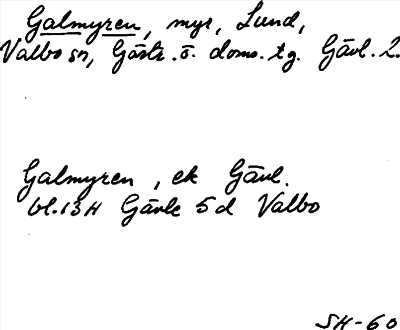 Galmyren, myr, Lund,
Valbo sn, Gästr. ö. doms. tg. Gävl. 2.
Galmyren, ek Gävl.
bl. 13H Gävle 5d Valbo
SH-60